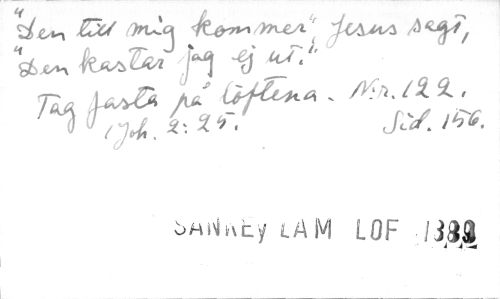 "Den till mig kommer", Jesus sagt,
"Den kastar jag ej ut."
Tag fasta på löftena. Nr. 122.
1 Joh. 2:25. Sid. 156.
SANKEY LAM LOF